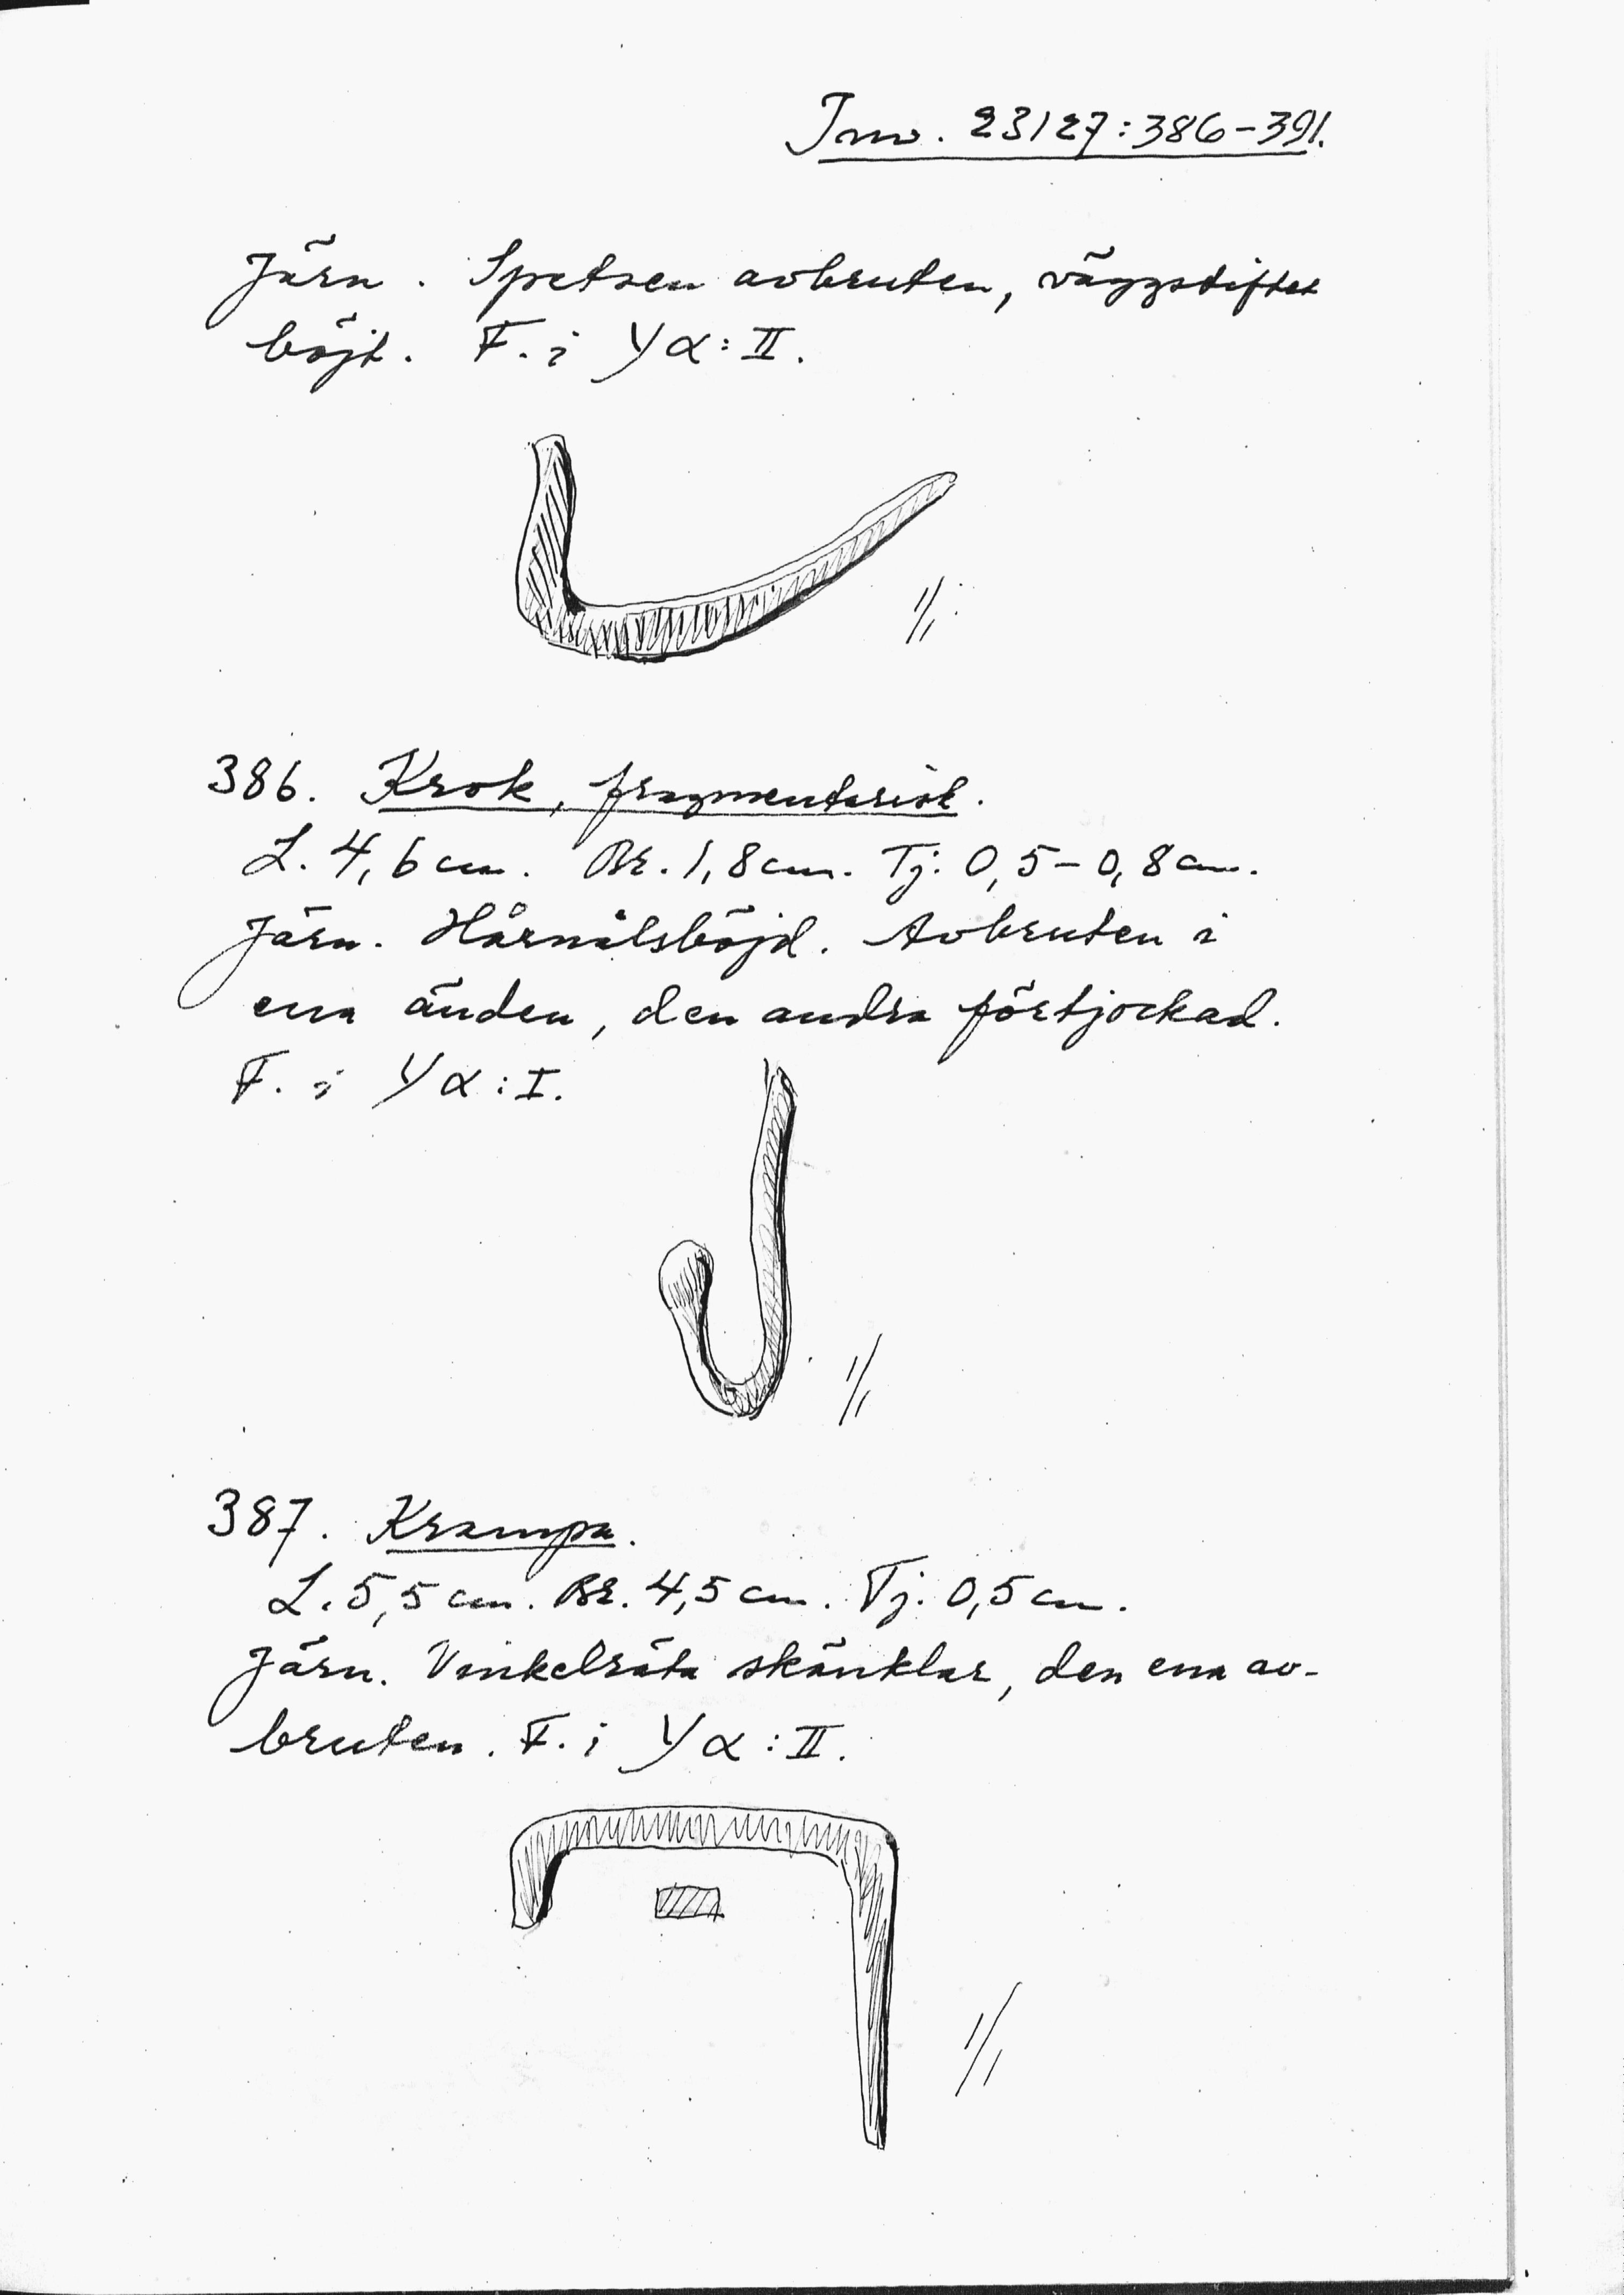 Inv. 23127:386-391.
Järn. Spetsen avbruten, väggstiftet
böjt. F. i Yα:II.
1/1.
386. Krok, fragmentarisk.
L. 4,6 cm. Br. 1,8 cm. Tj. 0,5-0,8 cm.
Järn. Hårnålsböjd. Avbruten i
ena änden, den andra förtjockad.
F. i Yα:I.
1/1
387. Krampa.
L. 5,5 cm. Br. 4,5 cm. Tj. 0,5 cm.
Järn. Vinkelräta skänklar, den ena av-
bruten. F. i Yα:II.
1/1